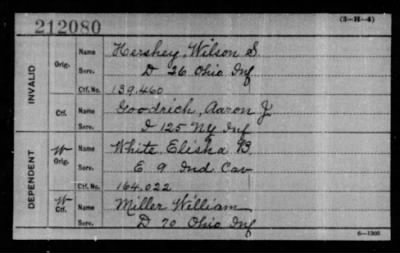 212080
(3-H-4)
INVALID
Orig. Name Hershey, Wilson S.
Serv. D 26 Ohio Inf
Ctf. No. 139,460
Ctf. Name Goodrich, Aaron J.
Serv. I 125 NY Inf
DEPENDENT
W Orig. Name White, Elisha B.
Serv. E 9 Ind Cav
Ctf. No. 164,022
W Ctf. Name Miller William
Serv. D 70 Ohio Inf